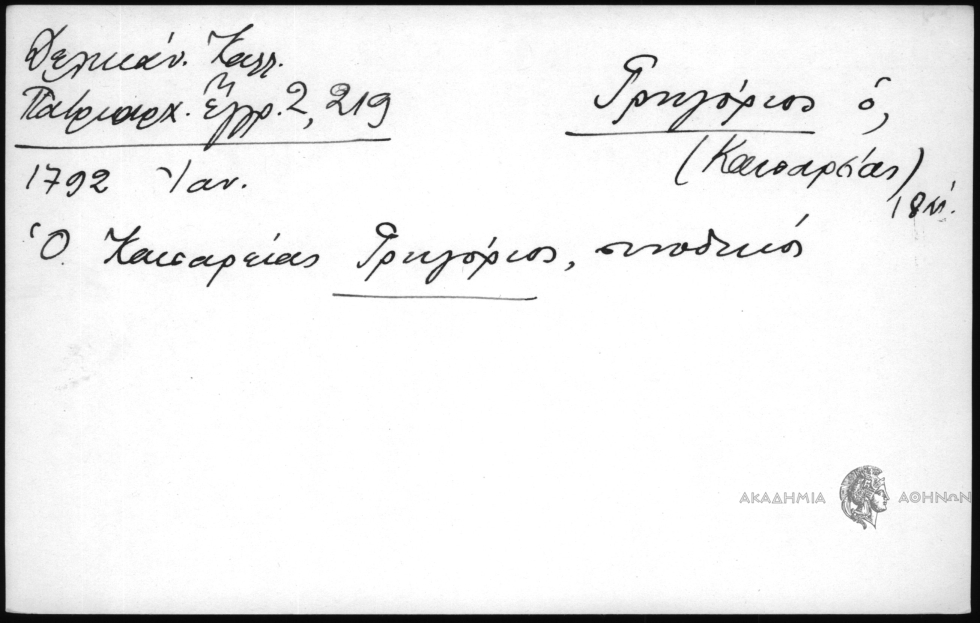 Δελικάν. Καλλ.
Πατριαρχ. Ἔγγρ. 2, 219
1792 Ἰαν.
Γρηγόριος ὁ,
(Καισαρείας)
18 αἰ.
Ὁ Καισαρείας Γρηγόριος, συνοδικός
ΑΚΑΔΗΜΙΑ ΑΘΗΝΩΝ